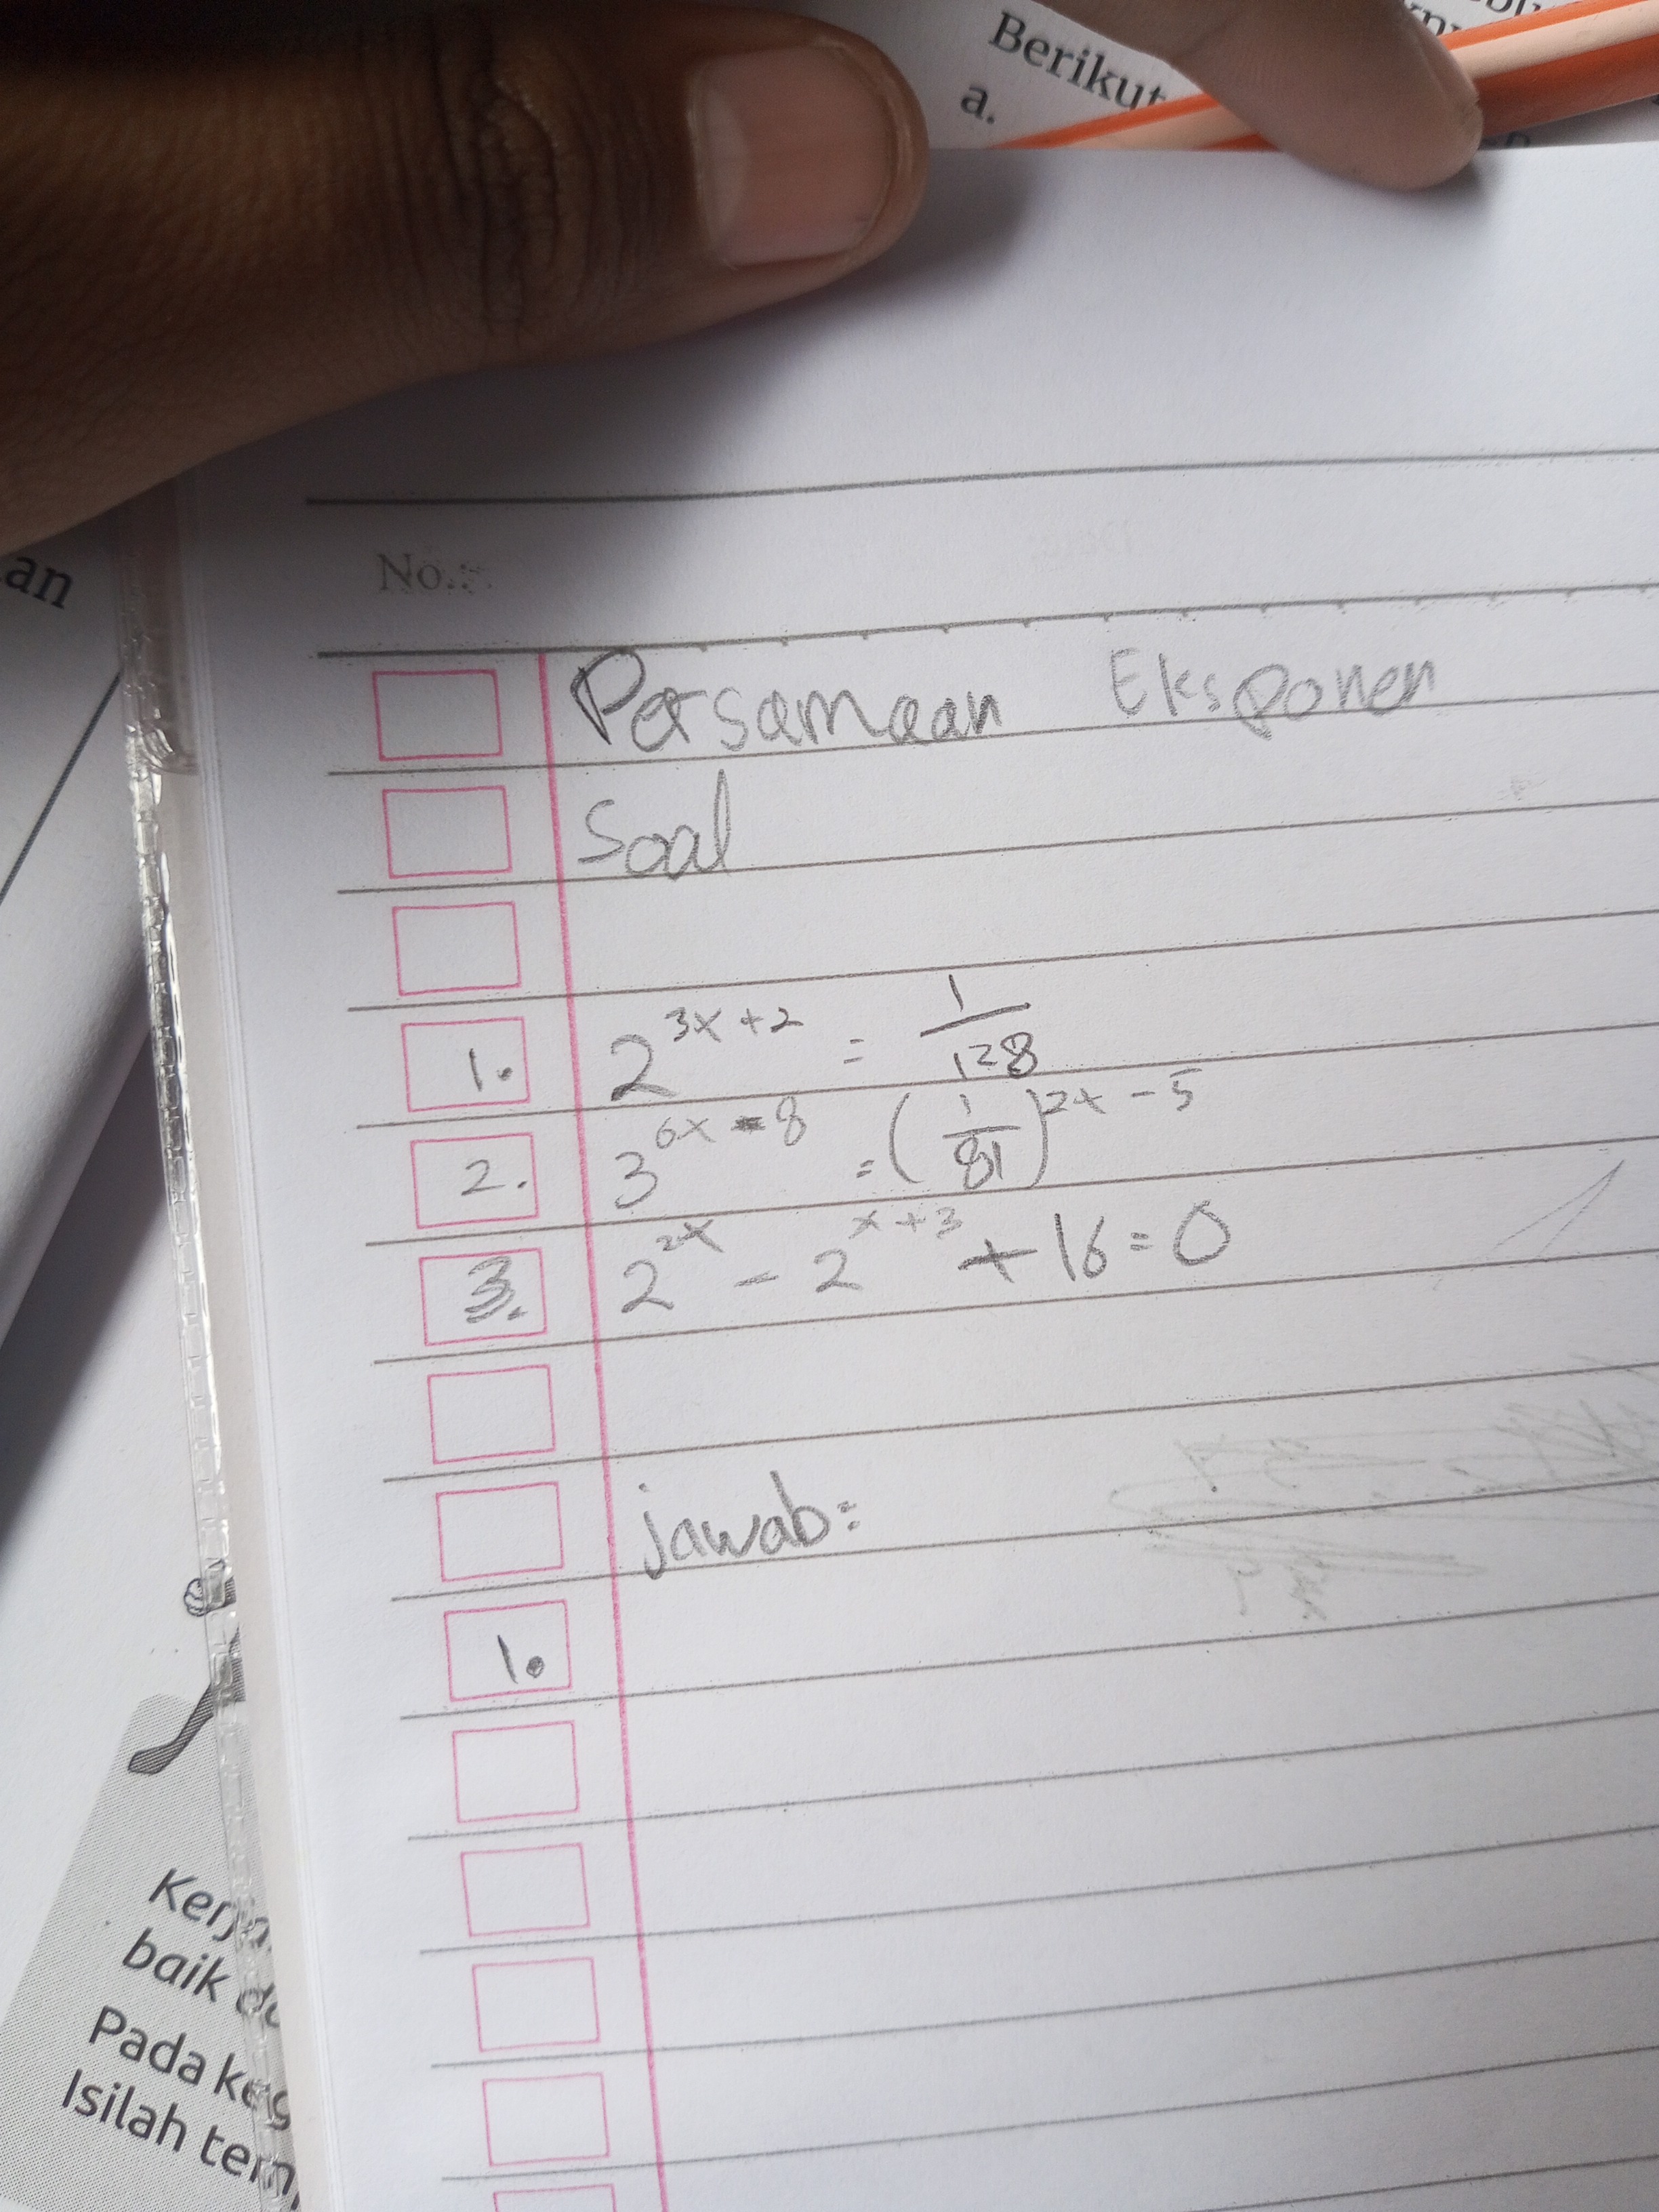 Berikut
a.
an
No.:
Persamaan Eksponen
Soal
1. 2^{3x+2} = 1/128
2. 3^{6x-8} = (1/81)^{2x-5}
3. 2^{2x} - 2^{x+3} + 16 = 0
jawab:
1.
baik
Pada
Isilah